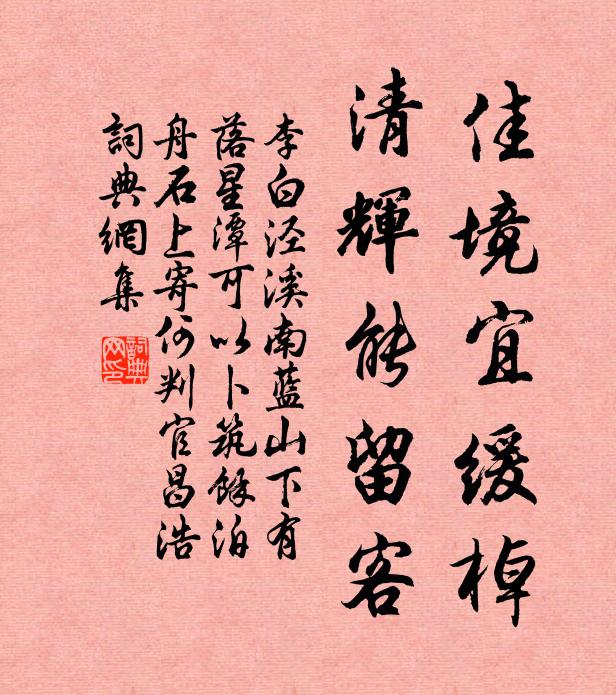 佳境宜緩棹
清輝能留客
李白涇溪南藍山下有
落星潭可以卜筑餘泊
舟石上寄何判官昌浩
詞典網集
詞典網印